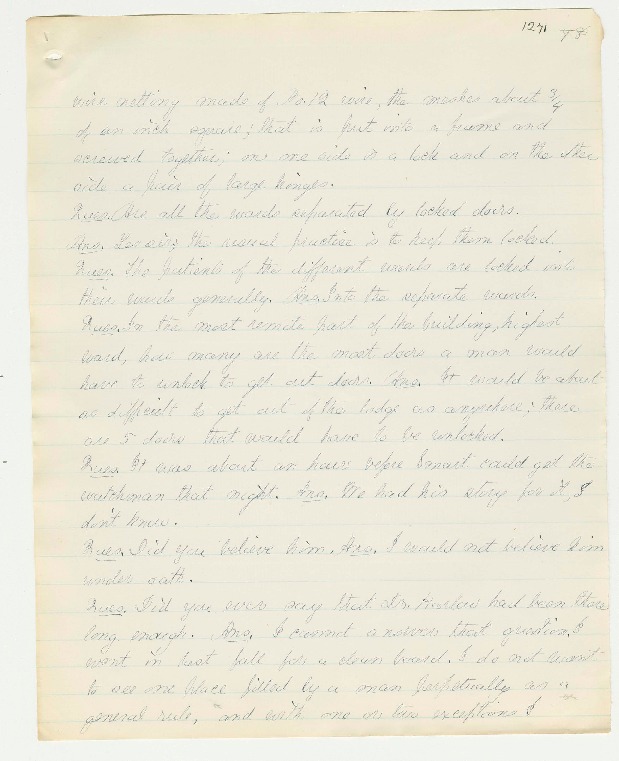 1271 78
wire netting made of No. 12 wire, the meshes about 3/4
of an inch square; that is put into a frame and
screwed together; on one side is a lock and on the other
side a pair of large hinges.
Ques. Are all the wards separated by locked doors.
Ans. Yes sir; the usual practice is to keep them locked.
Ques. The patients of the different wards are locked into
their wards generally. Ans. Into the separate wards.
Ques. In the most remote part of the building, highest
ward, how many are the most doors a man would
have to unlock to get out doors. Ans. It would be about
as difficult to get out of the lodge as anywhere; there
are 5 doors that would have to be unlocked.
Ques. It was about an hour before could get the
watchman that night. Ans. We had his story for it, I
don't know.
Ques. Did you believe him. Ans. I would not believe him
under oath.
Ques. Did you ever say that Dr. Harlow had been there
long enough. Ans. I cannot answer that question. I
went in last fall for a clean board. I do not want
to see one place filled by a man perpetually as a
general rule, and with one or two exceptions I